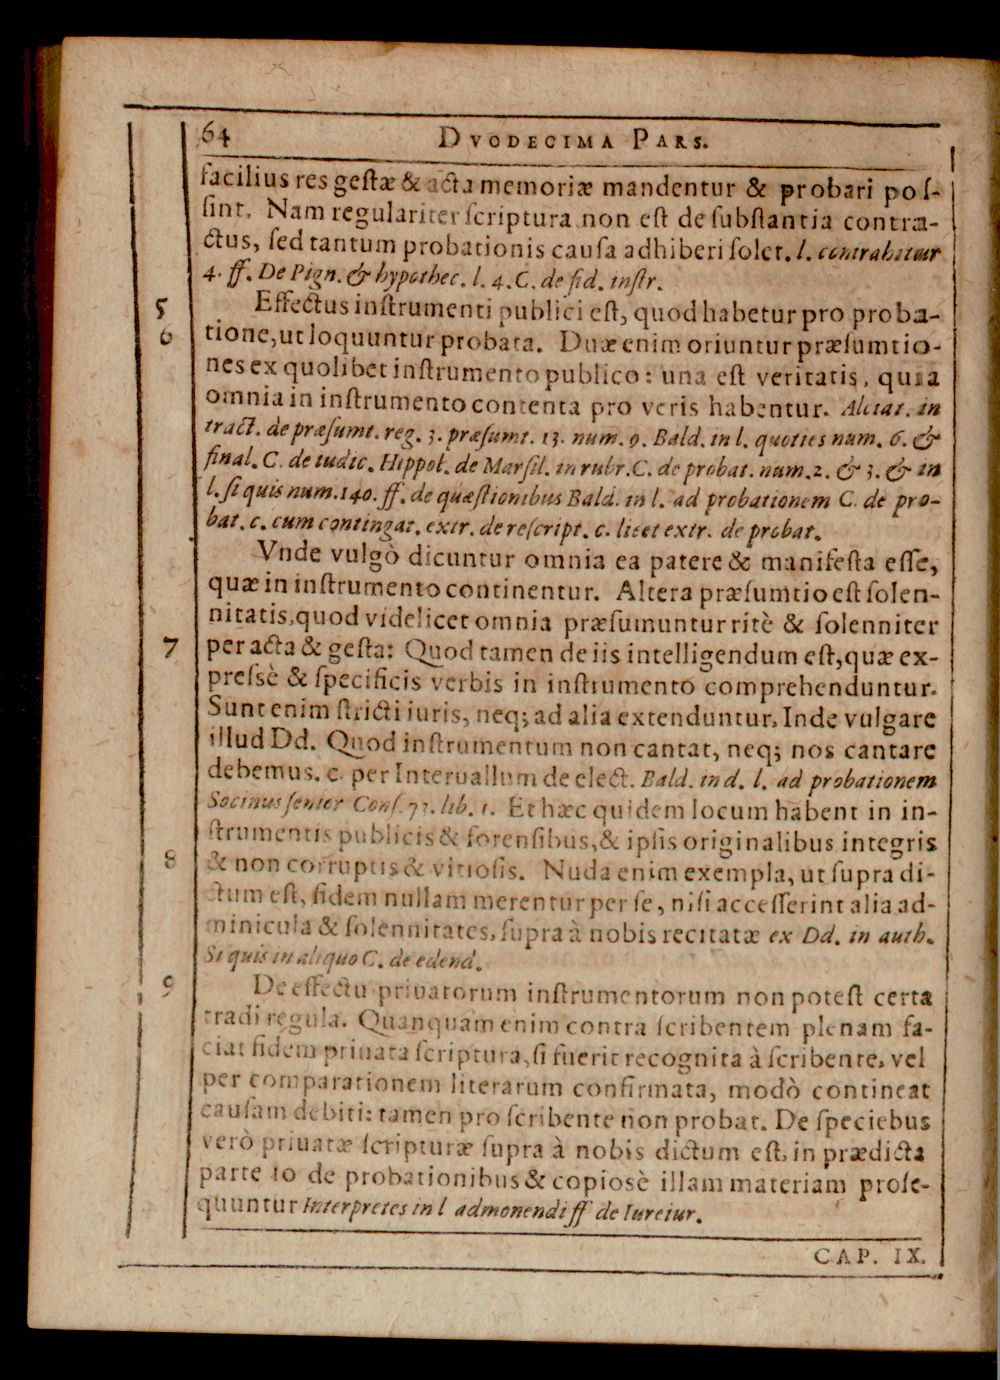 64 DVODECIMA PARS.
facilius res gestæ & acta memoriæ mandentur & probari pos-
sint. Nam regulariter scriptura non est de substantia contra-
ctus, sed tantum probationis causa adhiberi solet. l. contrahitur
4. ff. De Pign. & hypothec. l. 4. C. de fid. instr.
5 Effectus instrumenti publici est, quod habetur pro proba-
6 tione, ut loquuntur probata. Duæ enim oriuntur præsumtio-
nes ex quolibet instrumento publico: una est veritatis, quia
omnia in instrumento contenta pro veris habentur. Alciat. in
tract. de præsumt. reg. 3. præsumt. 13. num. 9. Bald. in l. quoties num. 6. &
final. C. de iudic. Hippol. de Marsil. in rubr. C. de probat. num. 2. & 3. & in
l. si quis num. 140. ff. de quæstionibus Bald. in l. ad probationem C. de pro-
bat. c. cum contingat. extr. de rescript. c. licet extr. de probat.
Vnde vulgò dicuntur omnia ea patere & manifesta esse,
quæ in instrumento continentur. Altera præsumtio est solen-
nitatis, quod videlicet omnia præsumuntur ritè & solenniter
7 per acta & gesta: Quod tamen de iis intelligendum est, quæ ex-
pressè & specificis verbis in instrumento comprehenduntur.
Sunt enim stricti iuris, neq; ad alia extenduntur, Inde vulgare
illud Dd. Quod instrumentum non cantat, neq; nos cantare
debemus. c. per Interuallum de elect. Bald. in d. l. ad probationem
Socinus senior Cons. 73. lib. 1. Et hæc quidem locum habent in in-
strumentis publicis & forensibus, & ipsis originalibus integris
8 & non corruptis & vitiosis. Nuda enim exempla, ut supra di-
ctum est, fidem nullam merentur per se, nisi accesserint alia ad-
minicula & solennitates, supra à nobis recitatæ ex Dd. in auth.
Si quis in aliquo C. de edend.
9 De effectu priuatorum instrumentorum non potest certa
tradi regula. Quanquam enim contra scribentem plenam fa-
ciat fidem priuata scriptura, si fuerit recognita à scribente, vel
per comparationem literarum confirmata, modò contineat
causam debiti: tamen pro scribente non probat. De speciebus
verò priuatæ scripturæ supra à nobis dictum est, in prædicta
parte 10 de probationibus & copiosè illam materiam prose-
quuntur Interpretes in l admonendi ff de Iureiur.
CAP. IX.